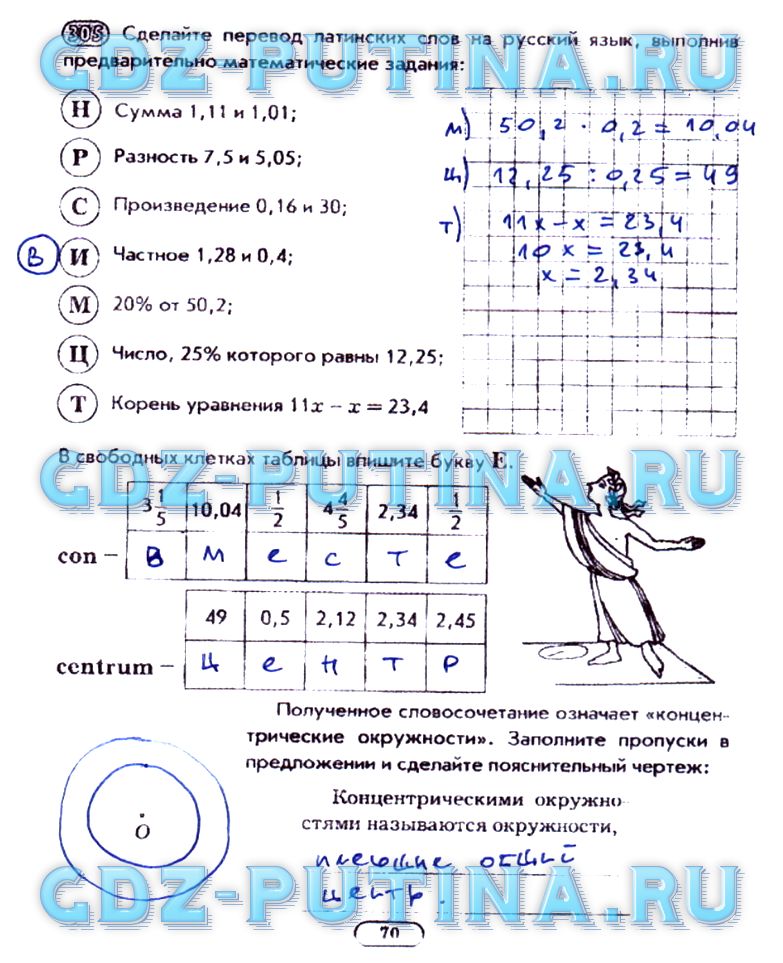 305 Сделайте перевод латинских слов на русский язык, выполнив
предварительно математические задания:
Н Сумма 1,11 и 1,01;
Р Разность 7,5 и 5,05;
С Произведение 0,16 и 30;
В И Частное 1,28 и 0,4;
М 20% от 50,2;
Ц Число, 25% которого равны 12,25;
Т Корень уравнения 11x − x = 23,4
м) 50,2 · 0,2 = 10,04
ц) 12,25 : 0,25 = 49
т) 11x − x = 23,4
10x = 23,4
x = 2,34
В свободных клетках таблицы впишите букву Е.
3 1/5 10,04 1/2 4 4/5 2,34 1/2
con – В м е с т е
49 0,5 2,12 2,34 2,45
centrum – ц е н т р
Полученное словосочетание означает «концен-
трические окружности». Заполните пропуски в
предложении и сделайте пояснительный чертеж:
Концентрическими окружно-
стями называются окружности,
имеющие общий
центр.
O
70
GDZ-PUTINA.RU
GDZ-PUTINA.RU
GDZ-PUTINA.RU